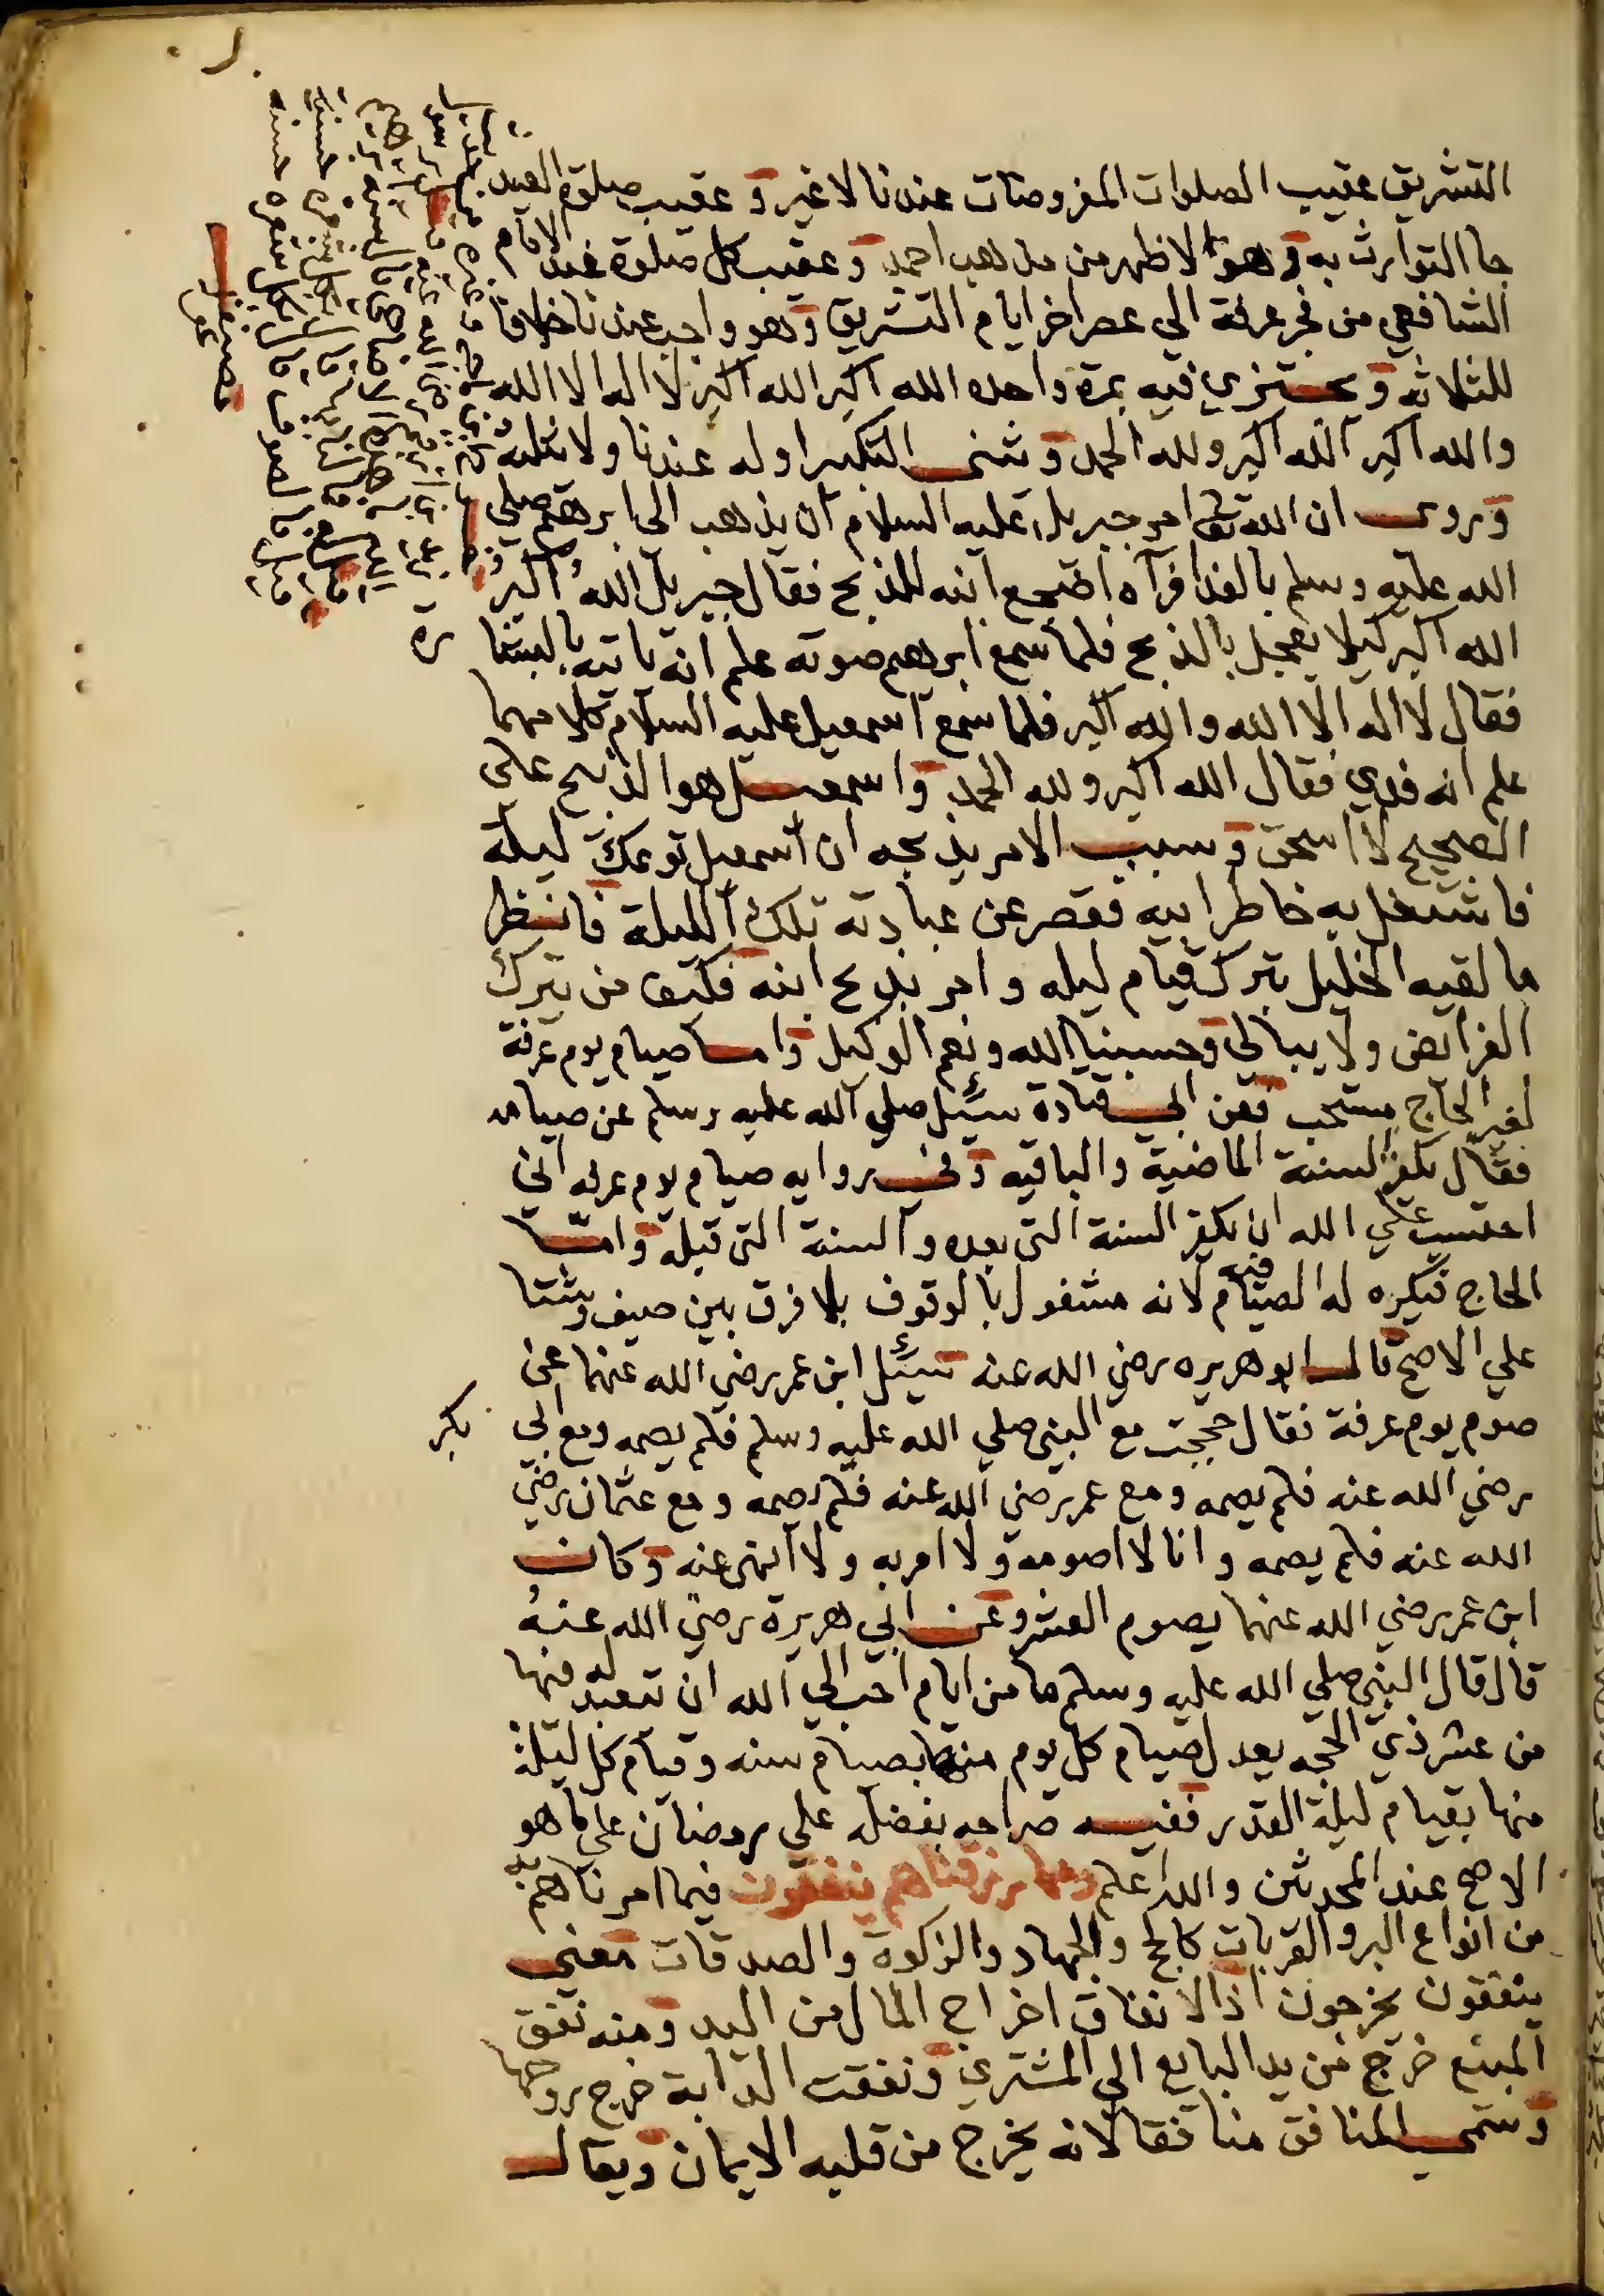 التشريق عقيب الصلوات المفروضات عندنا لا غير وعقيب صلوة العيد
جا التوارث به وهو الاظهر من مذهب احمد وعقيب كل صلوة عند الامام
الشافعي من فجر عرفة الي عصر اخر ايام التشريق وهو واجب عندنا خلافا
للثلاثه ويجتزي فيه بمرة واحده الله اكبر الله اكبر لا اله الا الله
والله اكبر الله اكبر ولله الحمد وثنى التكبير اوله عندنا ولا ثلثه
وروى ان الله تعالى امر جبريل عليه السلام ان يذهب الى ابرهيم صلي
الله عليه وسلم بالفدا فرآه اضجع ابنه للذبح فقال جبريل الله اكبر
الله اكبر كيلا يعجل بالذبح فلما سمع ابرهيم صوته علم انه ياتيه بالبشا رة
فقال لا اله الا الله والله اكبر فلما سمع اسمعيل عليه السلام كلامهما
علم انه فدي فقال الله اكبر ولله الحمد واسمعيل هو الذبيح على
الصحيح لا اسحق وسبب الامر بذبحه ان اسمعيل توعك ليلة
فاشتغل به خاطر ابيه فقصر عن عبادته تلك الليلة فانظر
ما لقيه الخليل بترك قيام ليله وامر بذبح ابنه فكيف من يترك
الفرائض ولا يبالي وحسبنا الله ونعم الوكيل واما صيام يوم عرفة
لغير الحاج مستحب فعن ابي قتادة سئل صلي الله عليه وسلم عن صيامه
فقال يكفر السنة الماضية والباقيه وفي روايه صيام يوم عرفه اني
احتسب علي الله ان يكفر السنة التي بعده والسنة التي قبله واما
الحاج فيكره له الصيام فيه لانه مشغول بالوقوف بلا فرق بين صيف وشتا
علي الاصح قال ابو هريره رضي الله عنه سئل ابن عمر رضي الله عنهما عن
صوم يوم عرفة فقال حججت مع النبي صلي الله عليه وسلم فلم يصمه ومع ابي بكر
رضي الله عنه فلم يصمه ومع عمر رضي الله عنه فلم يصمه ومع عثمان رضي
الله عنه فلم يصمه وانا لا اصومه ولا امر به ولا انهى عنه وكان
ابن عمر رضي الله عنهما يصوم العشر وعن ابي هريرة رضي الله عنه
قال قال النبي صلي الله عليه وسلم ما من ايام احب الي الله ان تتعبد له فيها
من عشر ذي الحجه يعدل صيام كل يوم منها بصيام سنه وقيام كل ليلة
منها بقيام ليلة القدر ففيه صراحه بفضله علي رمضان علي ما هو
الاصح عند المحدثين والله اعلم ومما رزقناهم ينفقون فيما امرناهم به
من انواع البر والقربات كالحج والجهاد والزكوة والصدقات معني
ينفقون يخرجون اذ الانفاق اخراج المال من اليد ومنه نفق
المبيع خرج من يد البايع الي المشتري ونفقت الدابة خرج روحها
وسمي المنافق منافقا لانه يخرج من قلبه الايمان ويقال